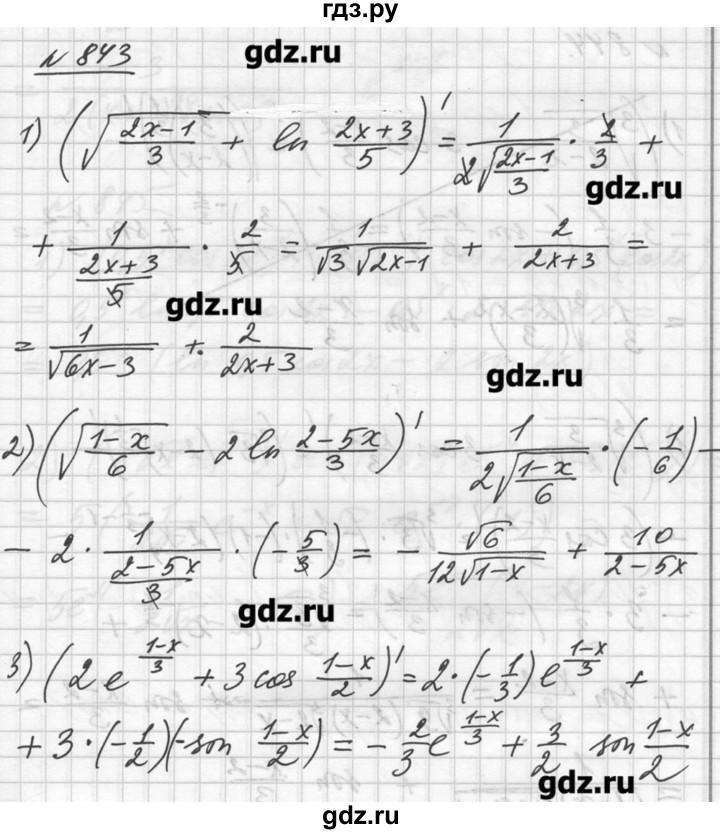 гдз.ру
№ 843 gdz.ru
1) (√((2x-1)/3) + ln (2x+3)/5)' = 1/(2√((2x-1)/3)) · 2/3 +
gdz.ru
+ 1/((2x+3)/5) · 2/5 = 1/(√3 √(2x-1)) + 2/(2x+3) =
gdz.ru
= 1/√(6x-3) + 2/(2x+3)
gdz.ru
2) (√((1-x)/6) - 2 ln (2-5x)/3)' = 1/(2√((1-x)/6)) · (-1/6) -
- 2 · 1/((2-5x)/3) · (-5/3) = - √6/(12√(1-x)) + 10/(2-5x)
gdz.ru
3) (2e^((1-x)/3) + 3 cos (1-x)/2)' = 2 · (-1/3) e^((1-x)/3) +
+ 3 · (-1/2)(-sin (1-x)/2) = -2/3 e^((1-x)/3) + 3/2 sin (1-x)/2
gdz.ru
gdz.ru